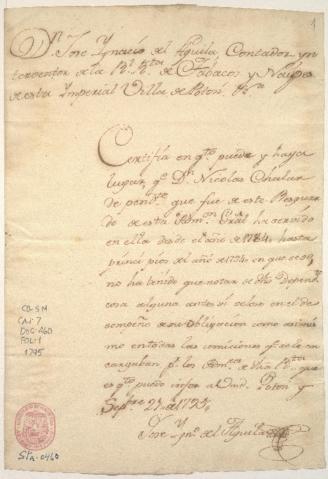 1
Dn. Jose Ygnacio del Aguila Contador yn
terventor de la Rl. Rta. de Tabacos y Naipes
de esta Ymperial Villa de Potosi
Certifía en qto. puede y haya
lugar, qe. Dn. Nicolas
que fue de este Resguar
do de esta Admon. Gral. ha servido
en ella desde el año de 1784, hasta
principios del año de en que se
no ha tenido que notar de dho. Depend
cosa alguna antes si celo en el de
sempeño de su obligacion como asimis
mo en todas las comisiones qe. se le en
cargaban pr. los de dha. Rta. que
es qto. puedo infor Potosi y
Sepre. 27 de
Jose Ygno. del Aguila
CB-SM
CAJ-7
DOC-460
FOL-1
1795
STA-0460